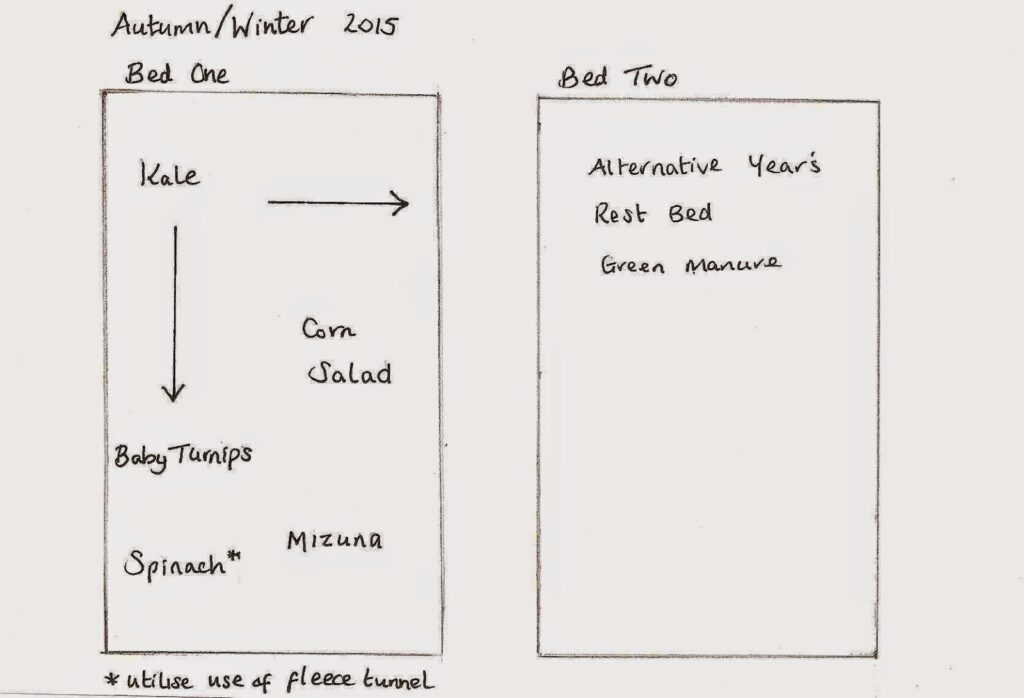 Autumn/Winter 2015
Bed One
Kale
Corn
Salad
Baby Turnips
Spinach*
Mizuna
* utilise use of fleece tunnel
Bed Two
Alternative Year's
Rest Bed
Green Manure